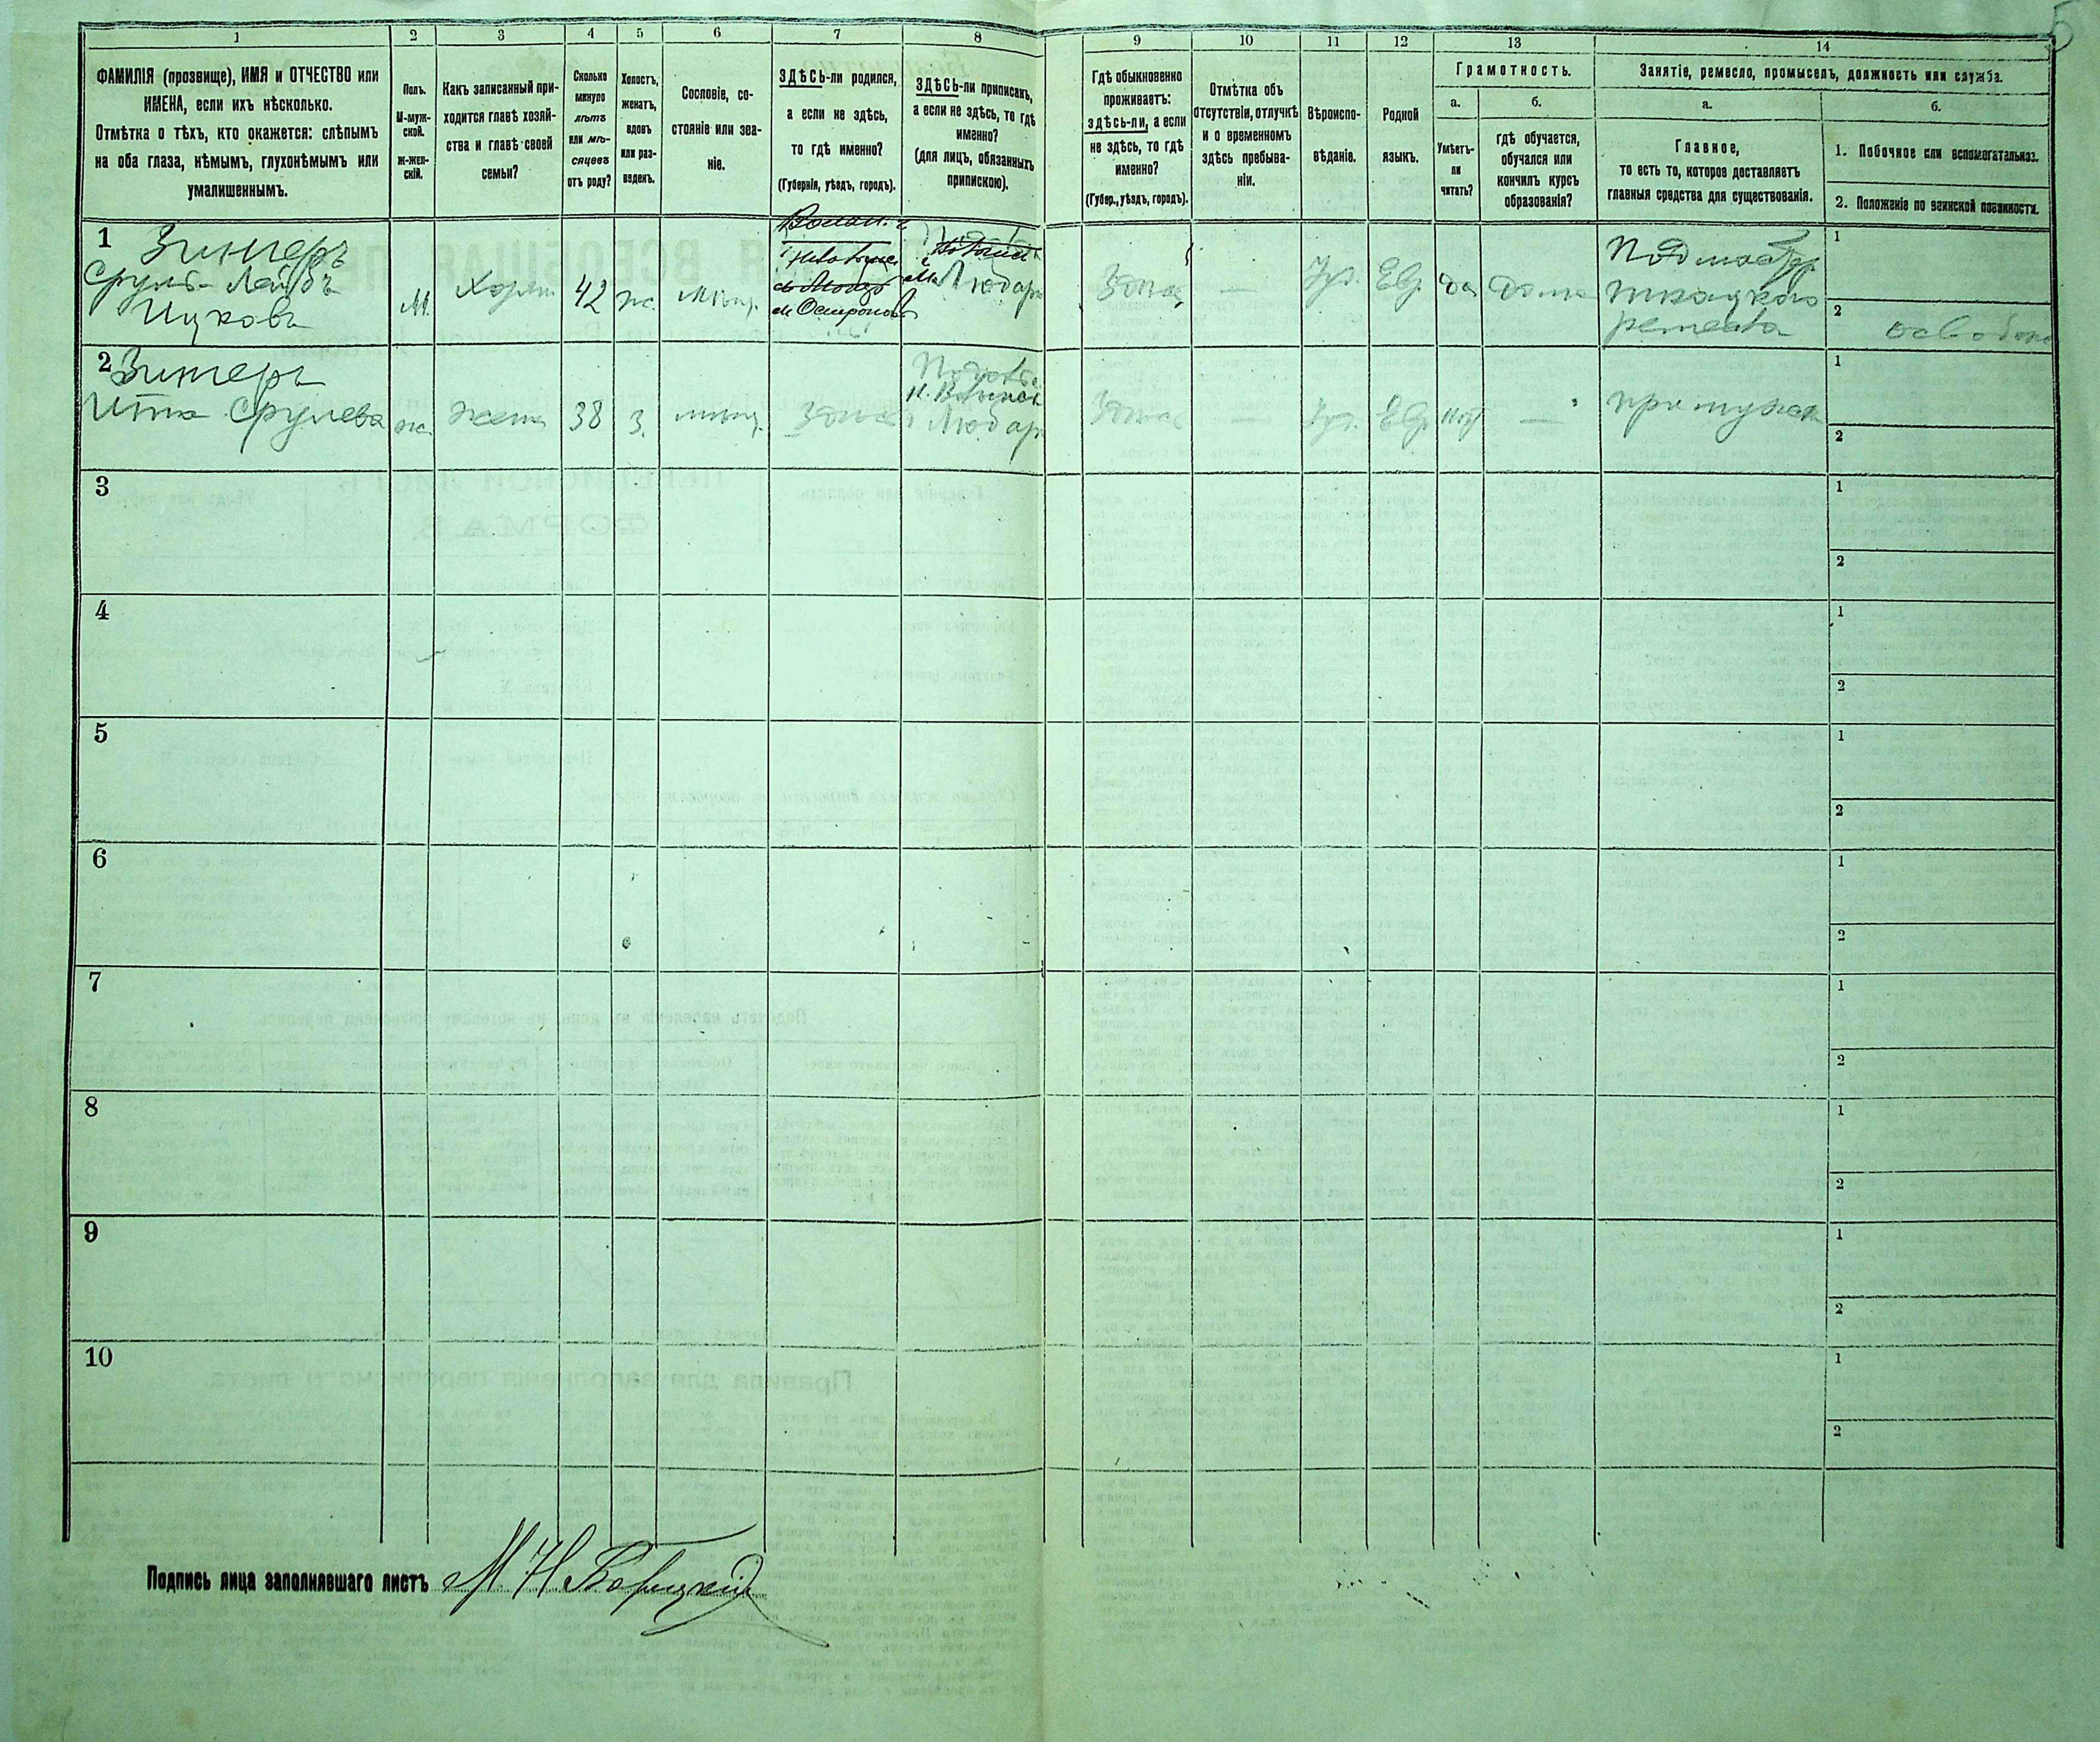 5
1 2 3 4 5 6 7 8 9 10 11 12 13 14
ФАМИЛІЯ (прозвище), ИМЯ и ОТЧЕСТВО или
ИМЕНА, если ихъ нѣсколько.
Отмѣтка о тѣхъ, кто окажется: слѣпымъ
на оба глаза, нѣмымъ, глухонѣмымъ или
умалишеннымъ.
Полъ.
М-муж-
ской.
ж-жен-
скій.
Какъ записанный при-
ходится главѣ хозяй-
ства и главѣ своей
семьи?
Сколько
минуло
лѣтъ
или мѣ-
сяцевъ
отъ роду?
Холостъ,
женатъ,
вдовъ
или раз-
веденъ.
Сословіе, со-
стояніе или зва-
ніе.
ЗДѢСЬ-ли родился,
а если не здѣсь,
то гдѣ именно?
(Губернія, уѣздъ, городъ).
ЗДѢСЬ-ли приписанъ,
а если не здѣсь, то гдѣ
именно?
(для лицъ, обязанныхъ
припискою).
Гдѣ обыкновенно
проживаетъ:
здѣсь-ли, а если
не здѣсь, то гдѣ
именно?
(Губер., уѣздъ, городъ).
Отмѣтка объ
отсутствіи, отлучкѣ
и о временномъ
здѣсь пребыва-
ніи.
Вѣроиспо-
вѣданіе.
Родной
языкъ.
Грамотность.
а.
Умѣетъ-
ли
читать?
б.
гдѣ обучается,
обучался или
кончилъ курсъ
образованія?
Занятіе, ремесло, промыселъ, должность или служба.
а.
Главное,
то есть то, которое доставляетъ
главныя средства для существованія.
б.
1. Побочное или вспомогательное.
2. Положеніе по воинской повинности.
1 Зингеръ
Сруль-Лейбъ
Ицковъ
М.
Хозяин
42
ж.
мѣщ.
м Острополь
м. Любарь
Здѣсь
—
Іуд.
Евр.
да
дома
Подмастер
ткацкого
ремесла
1
2 освобож
2 Зингеръ
Итта Срулева
ж.
жена
38
з.
мѣщ.
Здѣсь
Любарь
Здѣсь
—
Іуд.
Евр
нѣт
—
при мужѣ
1
2
3
1
2
4
1
2
5
1
2
6
1
2
7
1
2
8
1
2
9
1
2
10
1
2
Подпись лица заполнявшаго листъ